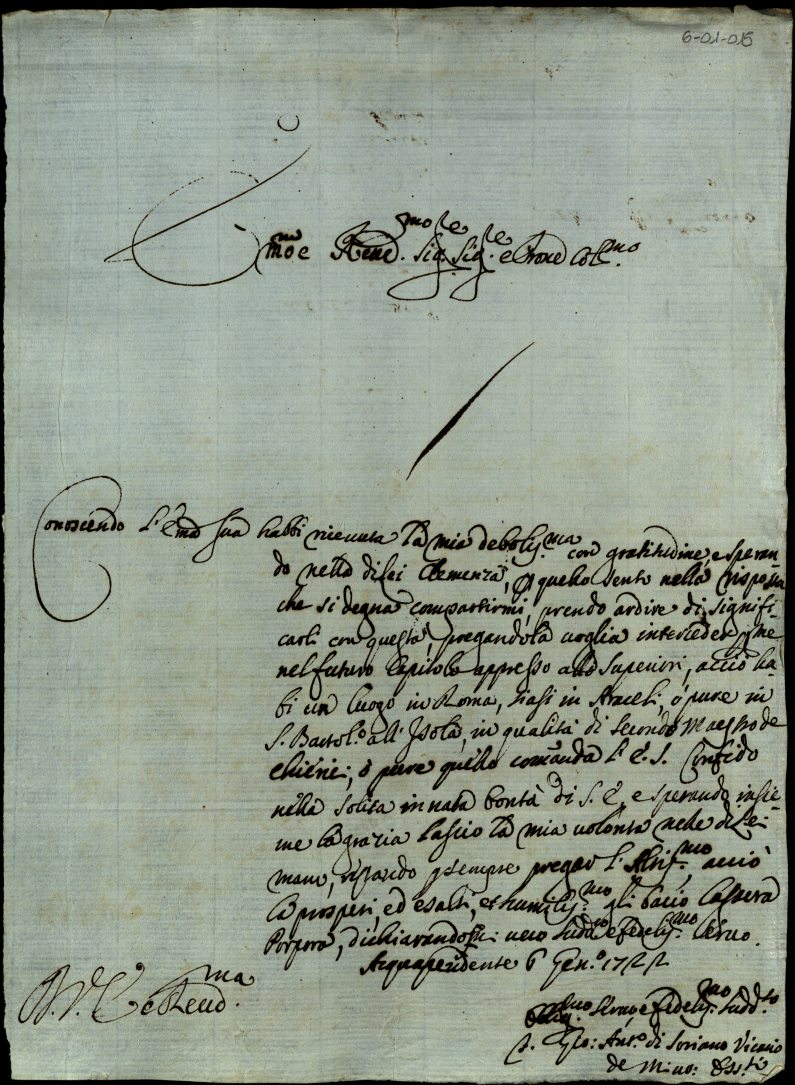 6-01-015
Em.mo e Reud.mo Sig.re Sig.re e Prone Col.mo
Conoscendo l'Em.a Sua habbi riceuuta la mia deboliss.ma con gratitudine, e speran-
do nella di lei Clemenza, p quello sento nella risposta
che si degna compartirmi, prendo ardire di signifi-
carli con questa, pregandola uoglia interceder p me
nel futuro Capitolo appresso alli Superiori, acciò ha-
bi un luogo in Roma, siasi in Araceli, ò pure in
S. Bartol.o all'Isola, in qualità di secondo Maestro de
chierici, ò pure quello comanda l'E. S. Confido
nella solita innata bontà di S. E. e sperando insie-
me la grazia lascio la mia uolontà nelle di Lei
mani, restando p sempre pregar l'Altiss.mo acciò
la prosperi, ed esalti, et humiliss.mo gli bacio la Sacra
Porpora, dichiarandomi uero Sudd.o e fedeliss.mo Seruo.
Acquapendente 6 Gen.o 1722
D. V. E. e Reud.ma
Seruo e fedeliss.mo Sudd.to
f. Gio: Ant.o di Soriano Vicario
de Mino: Oss.ti